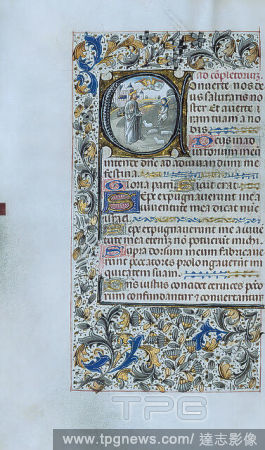 ad co͂pletoriu͂z.
Onverte nos de
us salutaris no
ster Et averte i
ram tuam a no
bis.
Deus in ad
iutorium meu͂
intende dn͂e ad adiuvandum me
festina.
Gloria patri Sicut erat.
Sepe expugnaverunt me a
iuventute mea dicat nu͂c
israel.
Sepe expugnaverunt me a iuve
tute mea etem͂ no͂ potuerut michi.
Supra dorsum meum fabricave
runt peccatores prolongaverut in
iquitatem suam.
concidet cervices pecca
rum confundantur et convertantur
TPG
www.tpgnews.com/ 達志影像